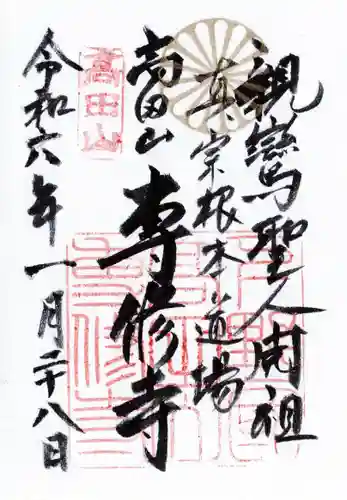 親鸞聖人開祖
真宗根本道場
高田山
専修寺
令和六年一月二十八日
高田山